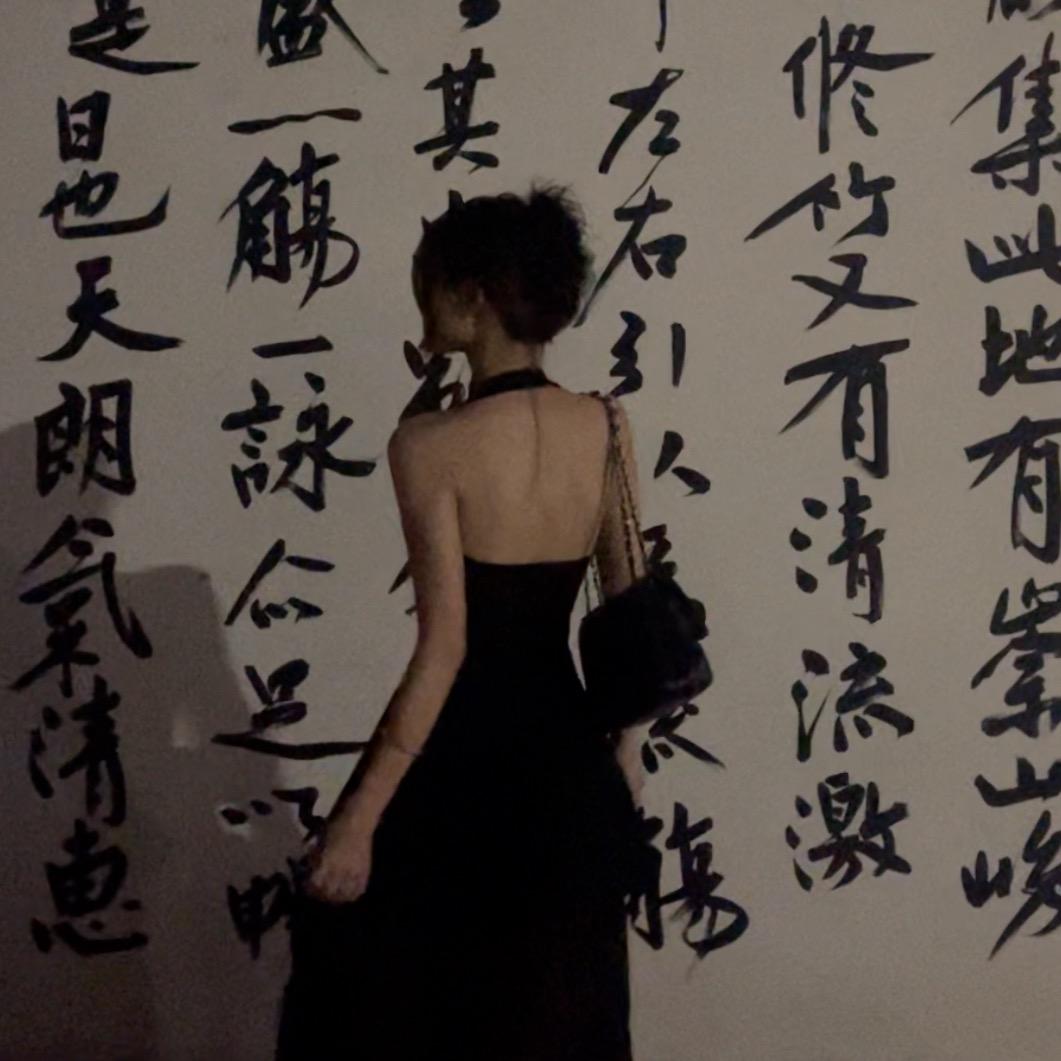 集此地有崇山峻
修竹又有清流激
左右引
其
盛一觴一詠亦足以
是日也天朗氣清惠